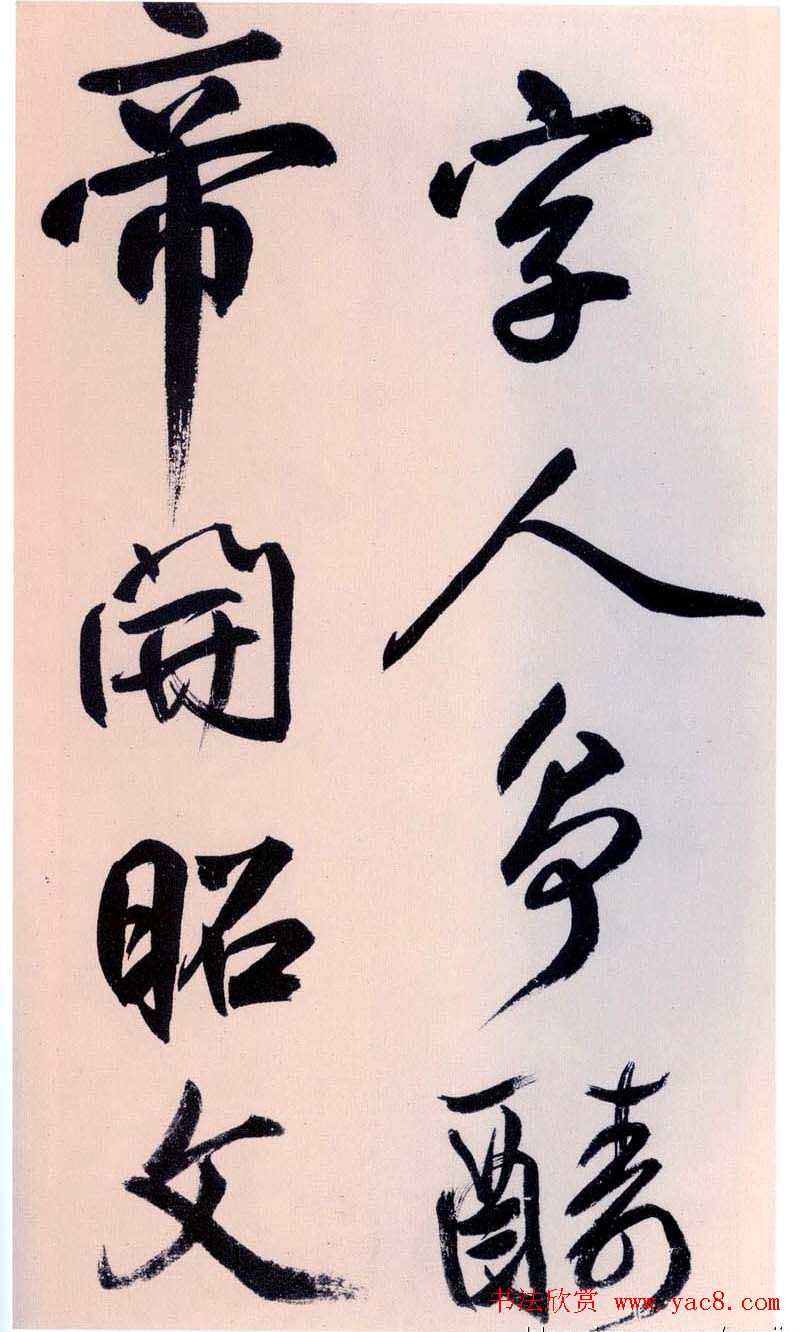 字人争酬
帝開昭文
书法欣赏 www.yac8.com